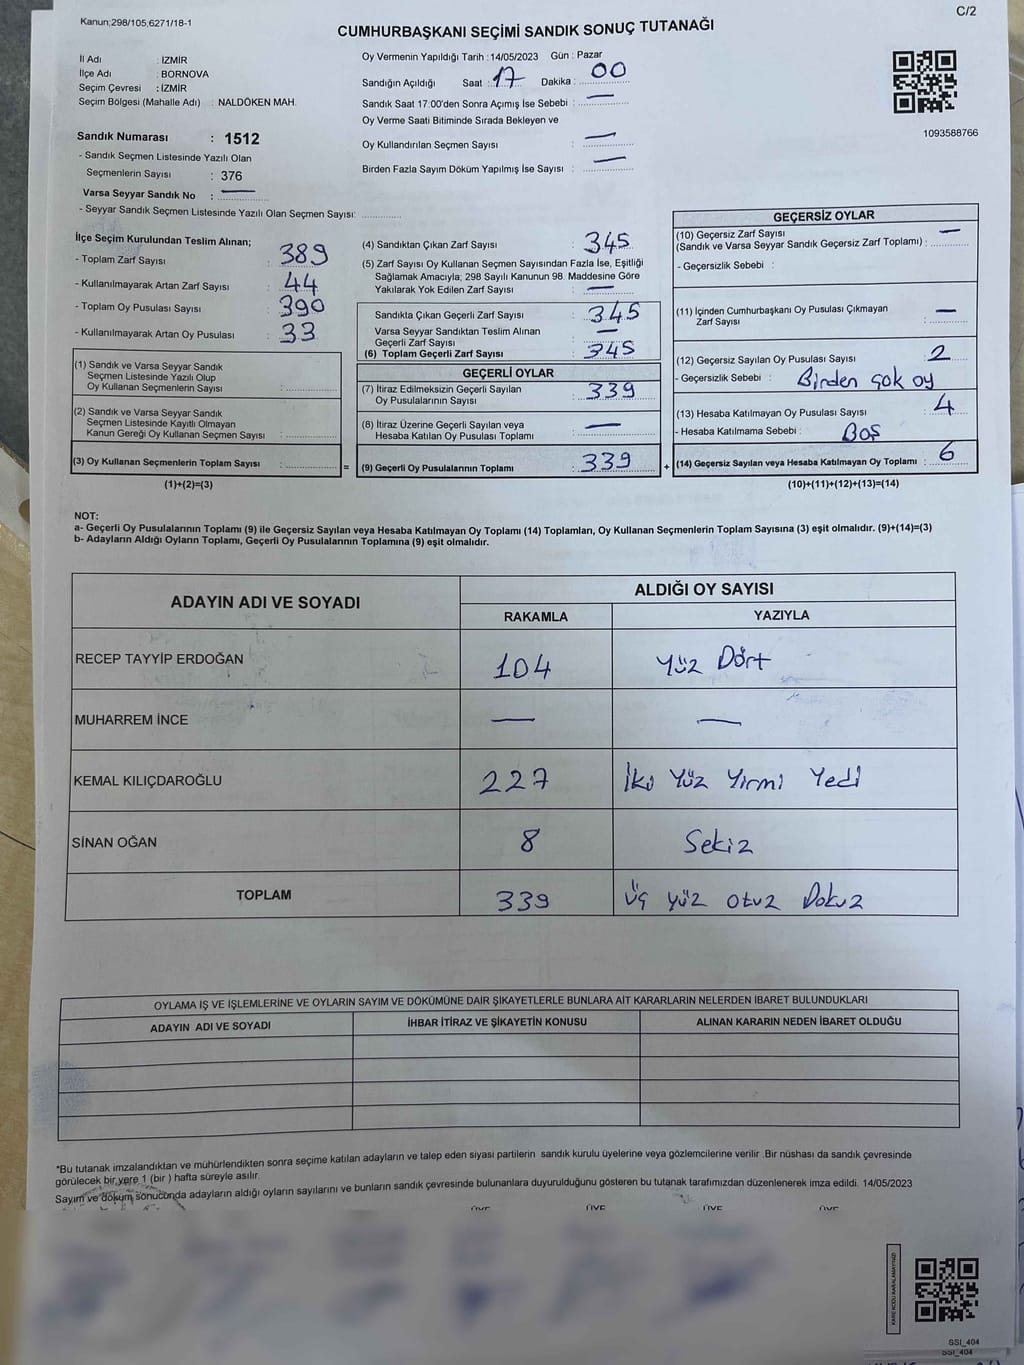 Kanun;298/105,6271/18-1
C/2
CUMHURBAŞKANI SEÇİMİ SANDIK SONUÇ TUTANAĞI
İl Adı : İZMİR
İlçe Adı : BORNOVA
Seçim Çevresi : İZMİR
Seçim Bölgesi (Mahalle Adı) : NALDÖKEN MAH.
Sandık Numarası : 1512
- Sandık Seçmen Listesinde Yazılı Olan
Seçmenlerin Sayısı : 376
Varsa Seyyar Sandık No : —
- Seyyar Sandık Seçmen Listesinde Yazılı Olan Seçmen Sayısı:
Oy Vermenin Yapıldığı Tarih :14/05/2023 Gün : Pazar
Sandığın Açıldığı Saat : 17 Dakika : 00
Sandık Saat 17:00'den Sonra Açımış İse Sebebi : —
Oy Verme Saati Bitiminde Sırada Bekleyen ve
Oy Kullandırılan Seçmen Sayısı : —
Birden Fazla Sayım Döküm Yapılmış İse Sayısı : —
1093588766
İlçe Seçim Kurulundan Teslim Alınan;
- Toplam Zarf Sayısı : 389
- Kullanılmayarak Artan Zarf Sayısı : 44
- Toplam Oy Pusulası Sayısı : 390
- Kullanılmayarak Artan Oy Pusulası : 33
(1) Sandık ve Varsa Seyyar Sandık
Seçmen Listesinde Yazılı Olup
Oy Kullanan Seçmen Sayısı :
(2) Sandık ve Varsa Seyyar Sandık
Seçmen Listesinde Kayıtlı Olmayan
Kanun Gereği Oy Kullanan Seçmen Sayısı :
(3) Oy Kullanan Seçmenlerin Toplam Sayısı :
(1)+(2)=(3)
(4) Sandıktan Çıkan Zarf Sayısı : 345
(5) Zarf Sayısı Oy Kullanan Seçmen Sayısından Fazla İse, Eşitliği
Sağlamak Amacıyla; 298 Sayılı Kanunun 98. Maddesine Göre
Yakılarak Yok Edilen Zarf Sayısı : —
Sandıkta Çıkan Geçerli Zarf Sayısı : 345
Varsa Seyyar Sandıktan Teslim Alınan —
Geçerli Zarf Sayısı :
(6) Toplam Geçerli Zarf Sayısı : 345
GEÇERLİ OYLAR
(7) İtiraz Edilmeksizin Geçerli Sayılan
Oy Pusulalarının Sayısı : 339
(8) İtiraz Üzerine Geçerli Sayılan veya
Hesaba Katılan Oy Pusulası Toplamı : —
= (9) Geçerli Oy Pusulalarının Toplamı : 339 +
GEÇERSİZ OYLAR
(10) Geçersiz Zarf Sayısı —
(Sandık ve Varsa Seyyar Sandık Geçersiz Zarf Toplamı) :
- Geçersizlik Sebebi :
(11) İçinden Cumhurbaşkanı Oy Pusulası Çıkmayan —
Zarf Sayısı :
(12) Geçersiz Sayılan Oy Pusulası Sayısı : 2
- Geçersizlik Sebebi : Birden çok oy
(13) Hesaba Katılmayan Oy Pusulası Sayısı : 4
- Hesaba Katılmama Sebebi : Boş
(14) Geçersiz Sayılan veya Hesaba Katılmayan Oy Toplamı : 6
(10)+(11)+(12)+(13)=(14)
NOT:
a- Geçerli Oy Pusulalarının Toplamı (9) ile Geçersiz Sayılan veya Hesaba Katılmayan Oy Toplamı (14) Toplamları, Oy Kullanan Seçmenlerin Toplam Sayısına (3) eşit olmalıdır. (9)+(14)=(3)
b- Adayların Aldığı Oyların Toplamı, Geçerli Oy Pusulalarının Toplamına (9) eşit olmalıdır.
ADAYIN ADI VE SOYADI
ALDIĞI OY SAYISI
RAKAMLA YAZIYLA
RECEP TAYYİP ERDOĞAN 104 Yüz Dört
MUHARREM İNCE — —
KEMAL KILIÇDAROĞLU 227 İki Yüz Yirmi Yedi
SİNAN OĞAN 8 Sekiz
TOPLAM 339 Üç yüz otuz Dokuz
OYLAMA İŞ VE İŞLEMLERİNE VE OYLARIN SAYIM VE DÖKÜMÜNE DAİR ŞİKAYETLERLE BUNLARA AİT KARARLARIN NELERDEN İBARET BULUNDUKLARI
ADAYIN ADI VE SOYADI İHBAR İTİRAZ VE ŞİKAYETİN KONUSU ALINAN KARARIN NEDEN İBARET OLDUĞU
*Bu tutanak imzalandıktan ve mühürlendikten sonra seçime katılan adayların ve talep eden siyasi partilerin sandık kurulu üyelerine veya gözlemcilerine verilir .Bir nüshası da sandık çevresinde
görülecek bir yere 1 (bir ) hafta süreyle asılır.
Sayım ve döküm sonucunda adayların aldığı oyların sayılarını ve bunların sandık çevresinde bulunanlara duyurulduğunu gösteren bu tutanak tarafımızdan düzenlenerek imza edildi. 14/05/2023
ÜYE ÜYE ÜYE ÜYE
KARE KODU KARALAMAYINIZ!
SSİ_404
SSİ_404